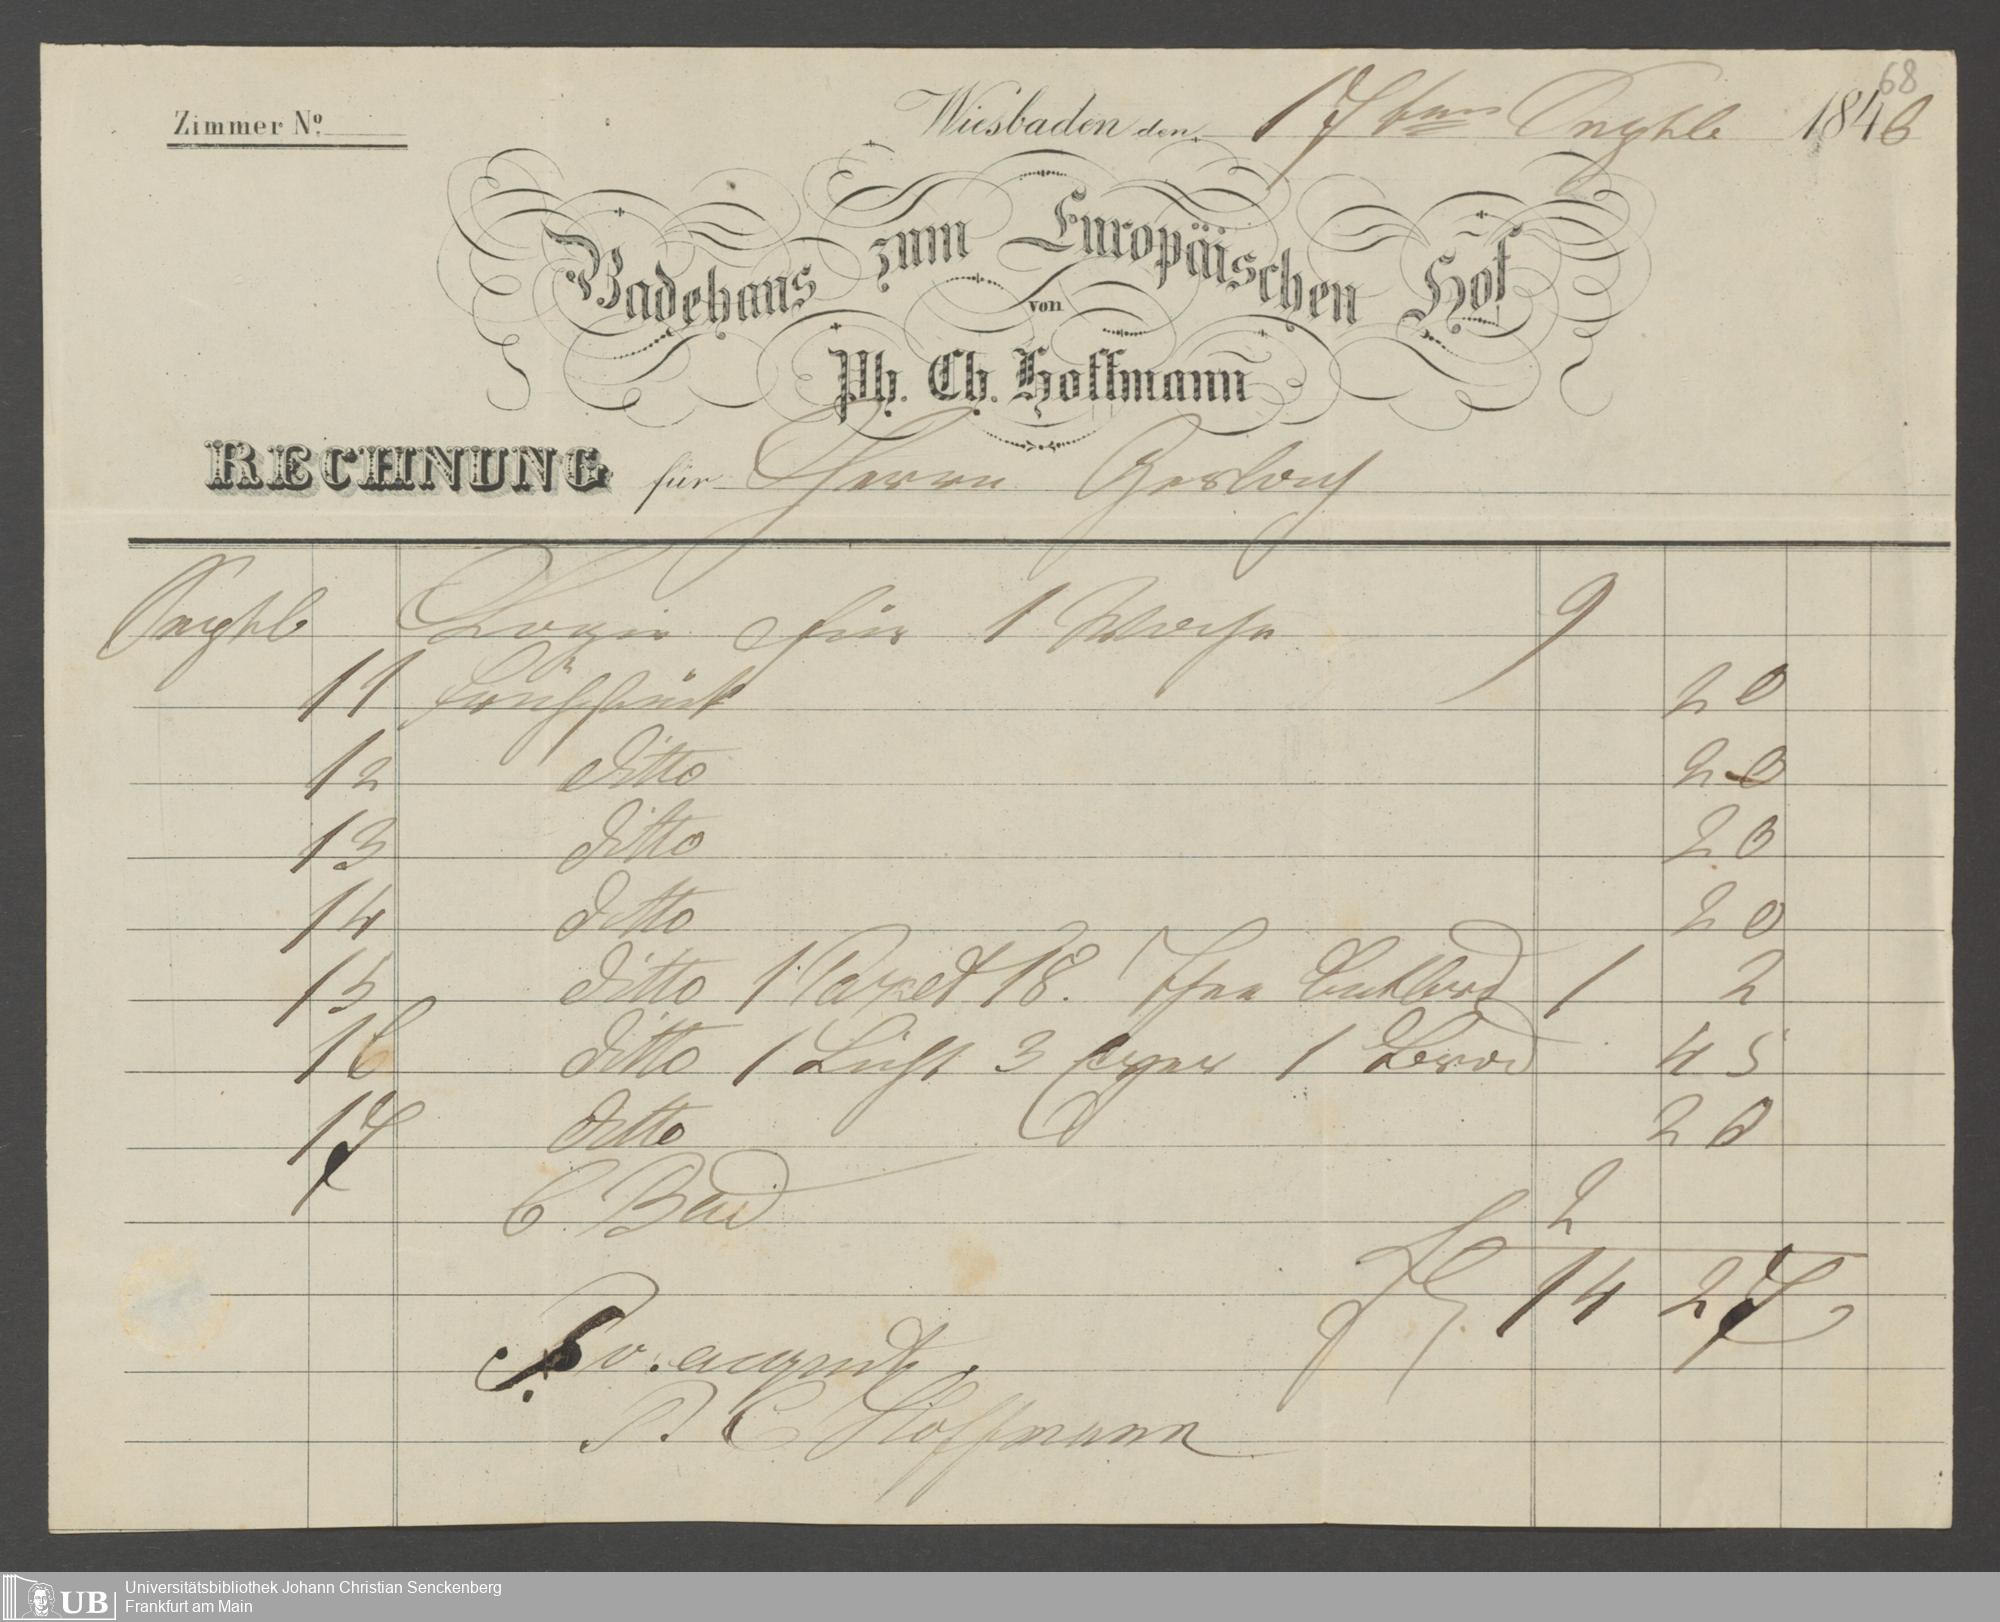 68
Zimmer No.
Wiesbaden den 17ten Septbr 1846
Badehaus zum Europäischen Hof
von
Ph. Ch. Hoffmann
RECHNUNG für Herrn Gerlach
Septbr Logis für 1 Woche 9
11 Frühstück 20
12 ditto 20
13 ditto 20
14 ditto 20
15 ditto 1 Paquet 18. Thee Butterbrod 1 2
16 ditto 1 Licht 3 Eyer 1 Brod 45
17 ditto 20
6 Bad 2
14 27
P. C. Hoffmann
UB Universitätsbibliothek Johann Christian Senckenberg
Frankfurt am Main